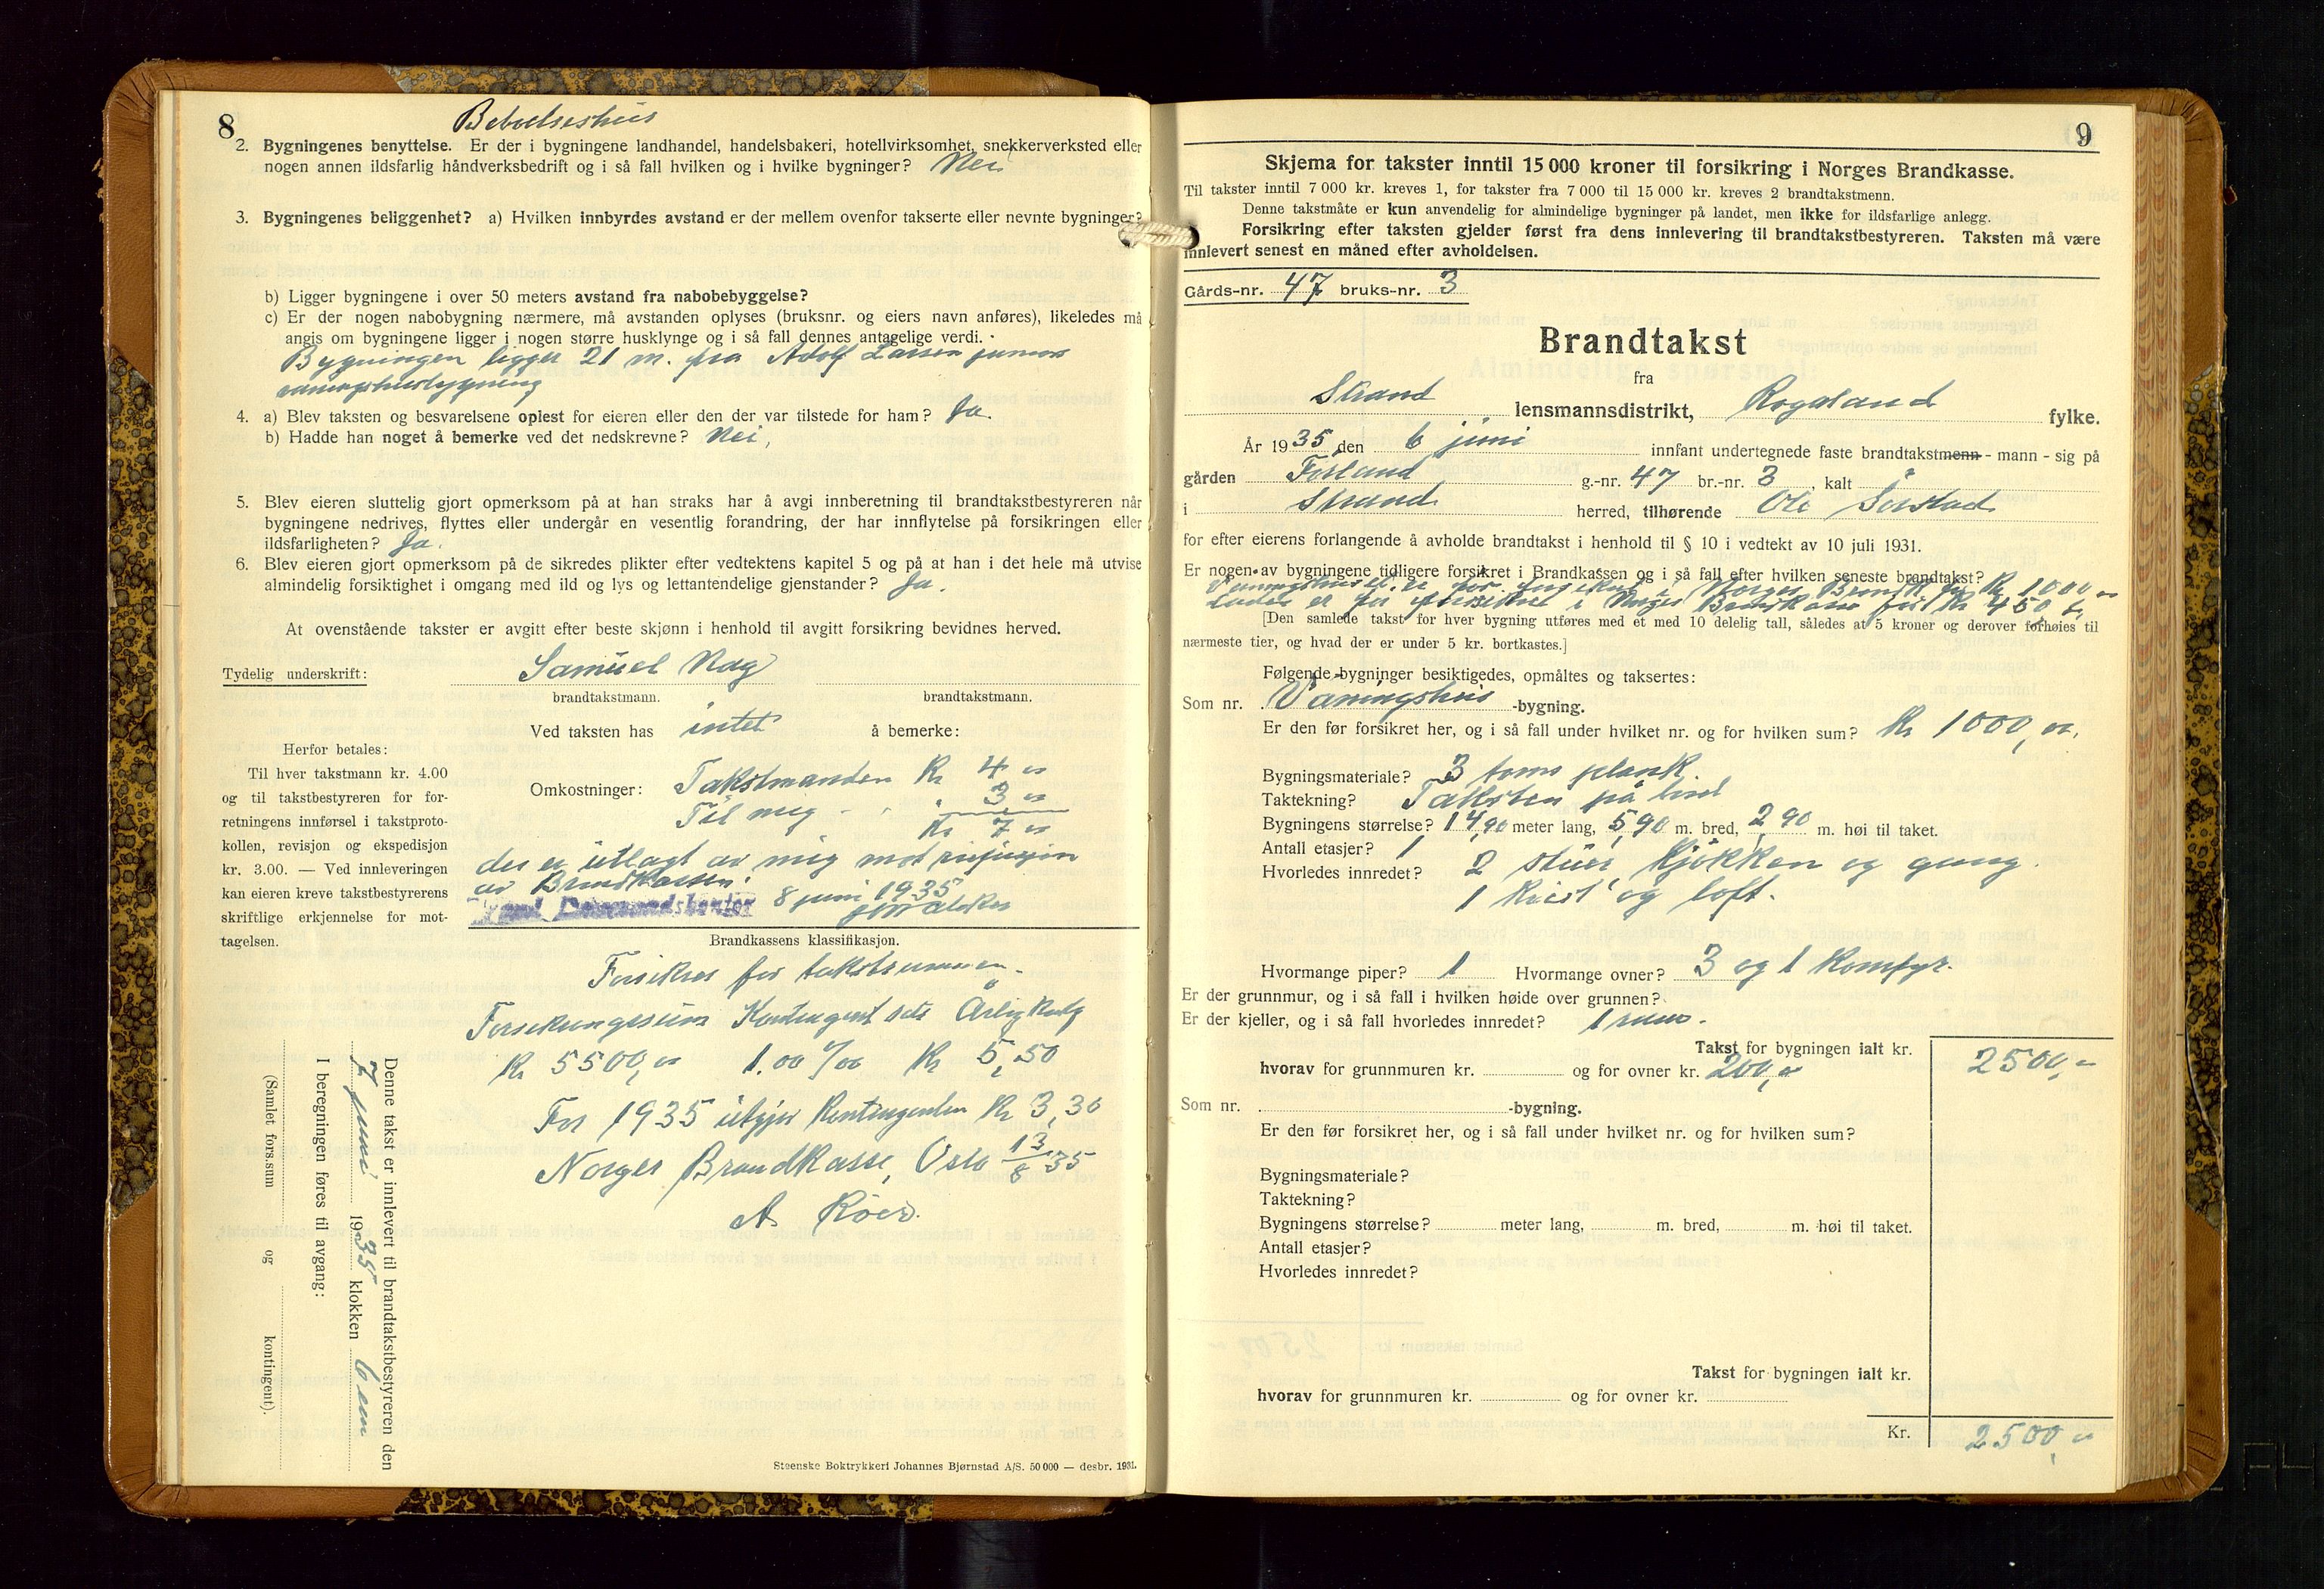 8
Beboelseshus
2. Bygningenes benyttelse. Er der i bygningene landhandel, handelsbakeri, hotellvirksomhet, snekkerverksted eller
nogen annen ildsfarlig håndverksbedrift og i så fall hvilken og i hvilke bygninger? Nei
3. Bygningenes beliggenhet? a) Hvilken innbyrdes avstand er der mellem ovenfor takserte eller nevnte bygninger?
b) Ligger bygningene i over 50 meters avstand fra nabobebyggelse?
c) Er der nogen nabobygning nærmere, må avstanden oplyses (bruksnr. og eiers navn anføres), likeledes må
angis om bygningene ligger i nogen større husklynge og i så fall dennes antagelige verdi.
Bygningen ligger 21 m. fra Adolf Larsen juniors
vaningshusbygning
4. a) Blev taksten og besvarelsene oplest for eieren eller den der var tilstede for ham? Ja.
b) Hadde han noget å bemerke ved det nedskrevne? Nei,
5. Blev eieren sluttelig gjort opmerksom på at han straks har å avgi innberetning til brandtakstbestyreren når
bygningene nedrives, flyttes eller undergår en vesentlig forandring, der har innflytelse på forsikringen eller
ildsfarligheten? Ja.
6. Blev eieren gjort opmerksom på de sikredes plikter efter vedtektens kapitel 5 og på at han i det hele må utvise
almindelig forsiktighet i omgang med ild og lys og lettantendelige gjenstander? Ja.
At ovenstående takster er avgitt efter beste skjønn i henhold til avgitt forsikring bevidnes herved.
Tydelig underskrift: Samuel Nag
brandtakstmann. brandtakstmann.
Ved taksten has intet å bemerke:
Herfor betales:
Til hver takstmann kr. 4.00
og til takstbestyreren for for-
retningens innførsel i takstproto-
kollen, revisjon og ekspedisjon
kr. 3.00. — Ved innleveringen
kan eieren kreve takstbestyrerens
skriftlige erkjennelse for mot-
tagelsen.
Omkostninger: Takstmanden Kr 4 "
Til mig - " 3 "
Kr 7 "
der er utlagt av mig mot refusjon
av Brandkassen.
8 juni 1935
Brandkassens klassifikasjon.
Forsikres for takstsummen.
Forsikringssum Kontingent sats Årlig Kontg
Kr 5500,00 1.00 %00 Kr 5,50
For 1935 utgjør Kontingenten Kr 3,30
Norges Brandkasse, Oslo 13/8 35
Denne takst er innlevert til brandtakstbestyreren den
7 juni 1935 klokken 6 em
I beregningen føres til avgang:
(Samlet fors.sum og kontingent).
Steenske Boktrykkeri Johannes Bjørnstad A/S. 50 000 — desbr. 1931.
9
Skjema for takster inntil 15 000 kroner til forsikring i Norges Brandkasse.
Til takster inntil 7 000 kr. kreves 1, for takster fra 7 000 til 15 000 kr. kreves 2 brandtakstmenn.
Denne takstmåte er kun anvendelig for almindelige bygninger på landet, men ikke for ildsfarlige anlegg.
Forsikring efter taksten gjelder først fra dens innlevering til brandtakstbestyreren. Taksten må være
innlevert senest en måned efter avholdelsen.
Gårds-nr. 47 bruks-nr. 3
Brandtakst
fra
Strand lensmannsdistrikt, Rogaland fylke.
År 1935 den 6 juni innfant undertegnede faste brandtakstmenn - mann - sig på
gården Forland g.-nr. 47 br.-nr. 3, kalt
i Strand herred, tilhørende Ole Sørstad
for efter eierens forlangende å avholde brandtakst i henhold til § 10 i vedtekt av 10 juli 1931.
Er nogen av bygningene tidligere forsikret i Brandkassen og i så fall efter hvilken seneste brandtakst?
Vaningshuset er før forsikret i Norges Brandk. for Kr 1000 "
Laden er før forsikret i Norges Brandkasse for Kr 450
[Den samlede takst for hver bygning utføres med et med 10 delelig tall, således at 5 kroner og derover forhøies til
nærmeste tier, og hvad der er under 5 kr. bortkastes.]
Følgende bygninger besiktigedes, opmåltes og taksertes:
Som nr. Vaningshus -bygning.
Er den før forsikret her, og i så fall under hvilket nr. og for hvilken sum? Kr 1000,00.
Bygningsmateriale? 3 toms plank.
Taktekning? Taksten på bord
Bygningens størrelse? 14,90 meter lang, 5,90 m. bred, 2,90 m. høi til taket.
Antall etasjer? 1
Hvorledes innredet? 2 stuer, Kjøkken og gang.
1 Kvist og loft.
Hvormange piper? 1 Hvormange ovner? 3 og 1 Komfyr.
Er der grunnmur, og i så fall i hvilken høide over grunnen?
Er der kjeller, og i så fall hvorledes innredet? 1 rum.
Takst for bygningen ialt kr. 2500,-
hvorav for grunnmuren kr. og for ovner kr. 200,-
Som nr. -bygning.
Er den før forsikret her, og i så fall under hvilket nr. og for hvilken sum?
Bygningsmateriale?
Taktekning?
Bygningens størrelse? meter lang, m. bred, m. høi til taket.
Antall etasjer?
Hvorledes innredet?
Takst for bygningen ialt kr.
hvorav for grunnmuren kr. og for ovner kr.
Kr. 2500,-